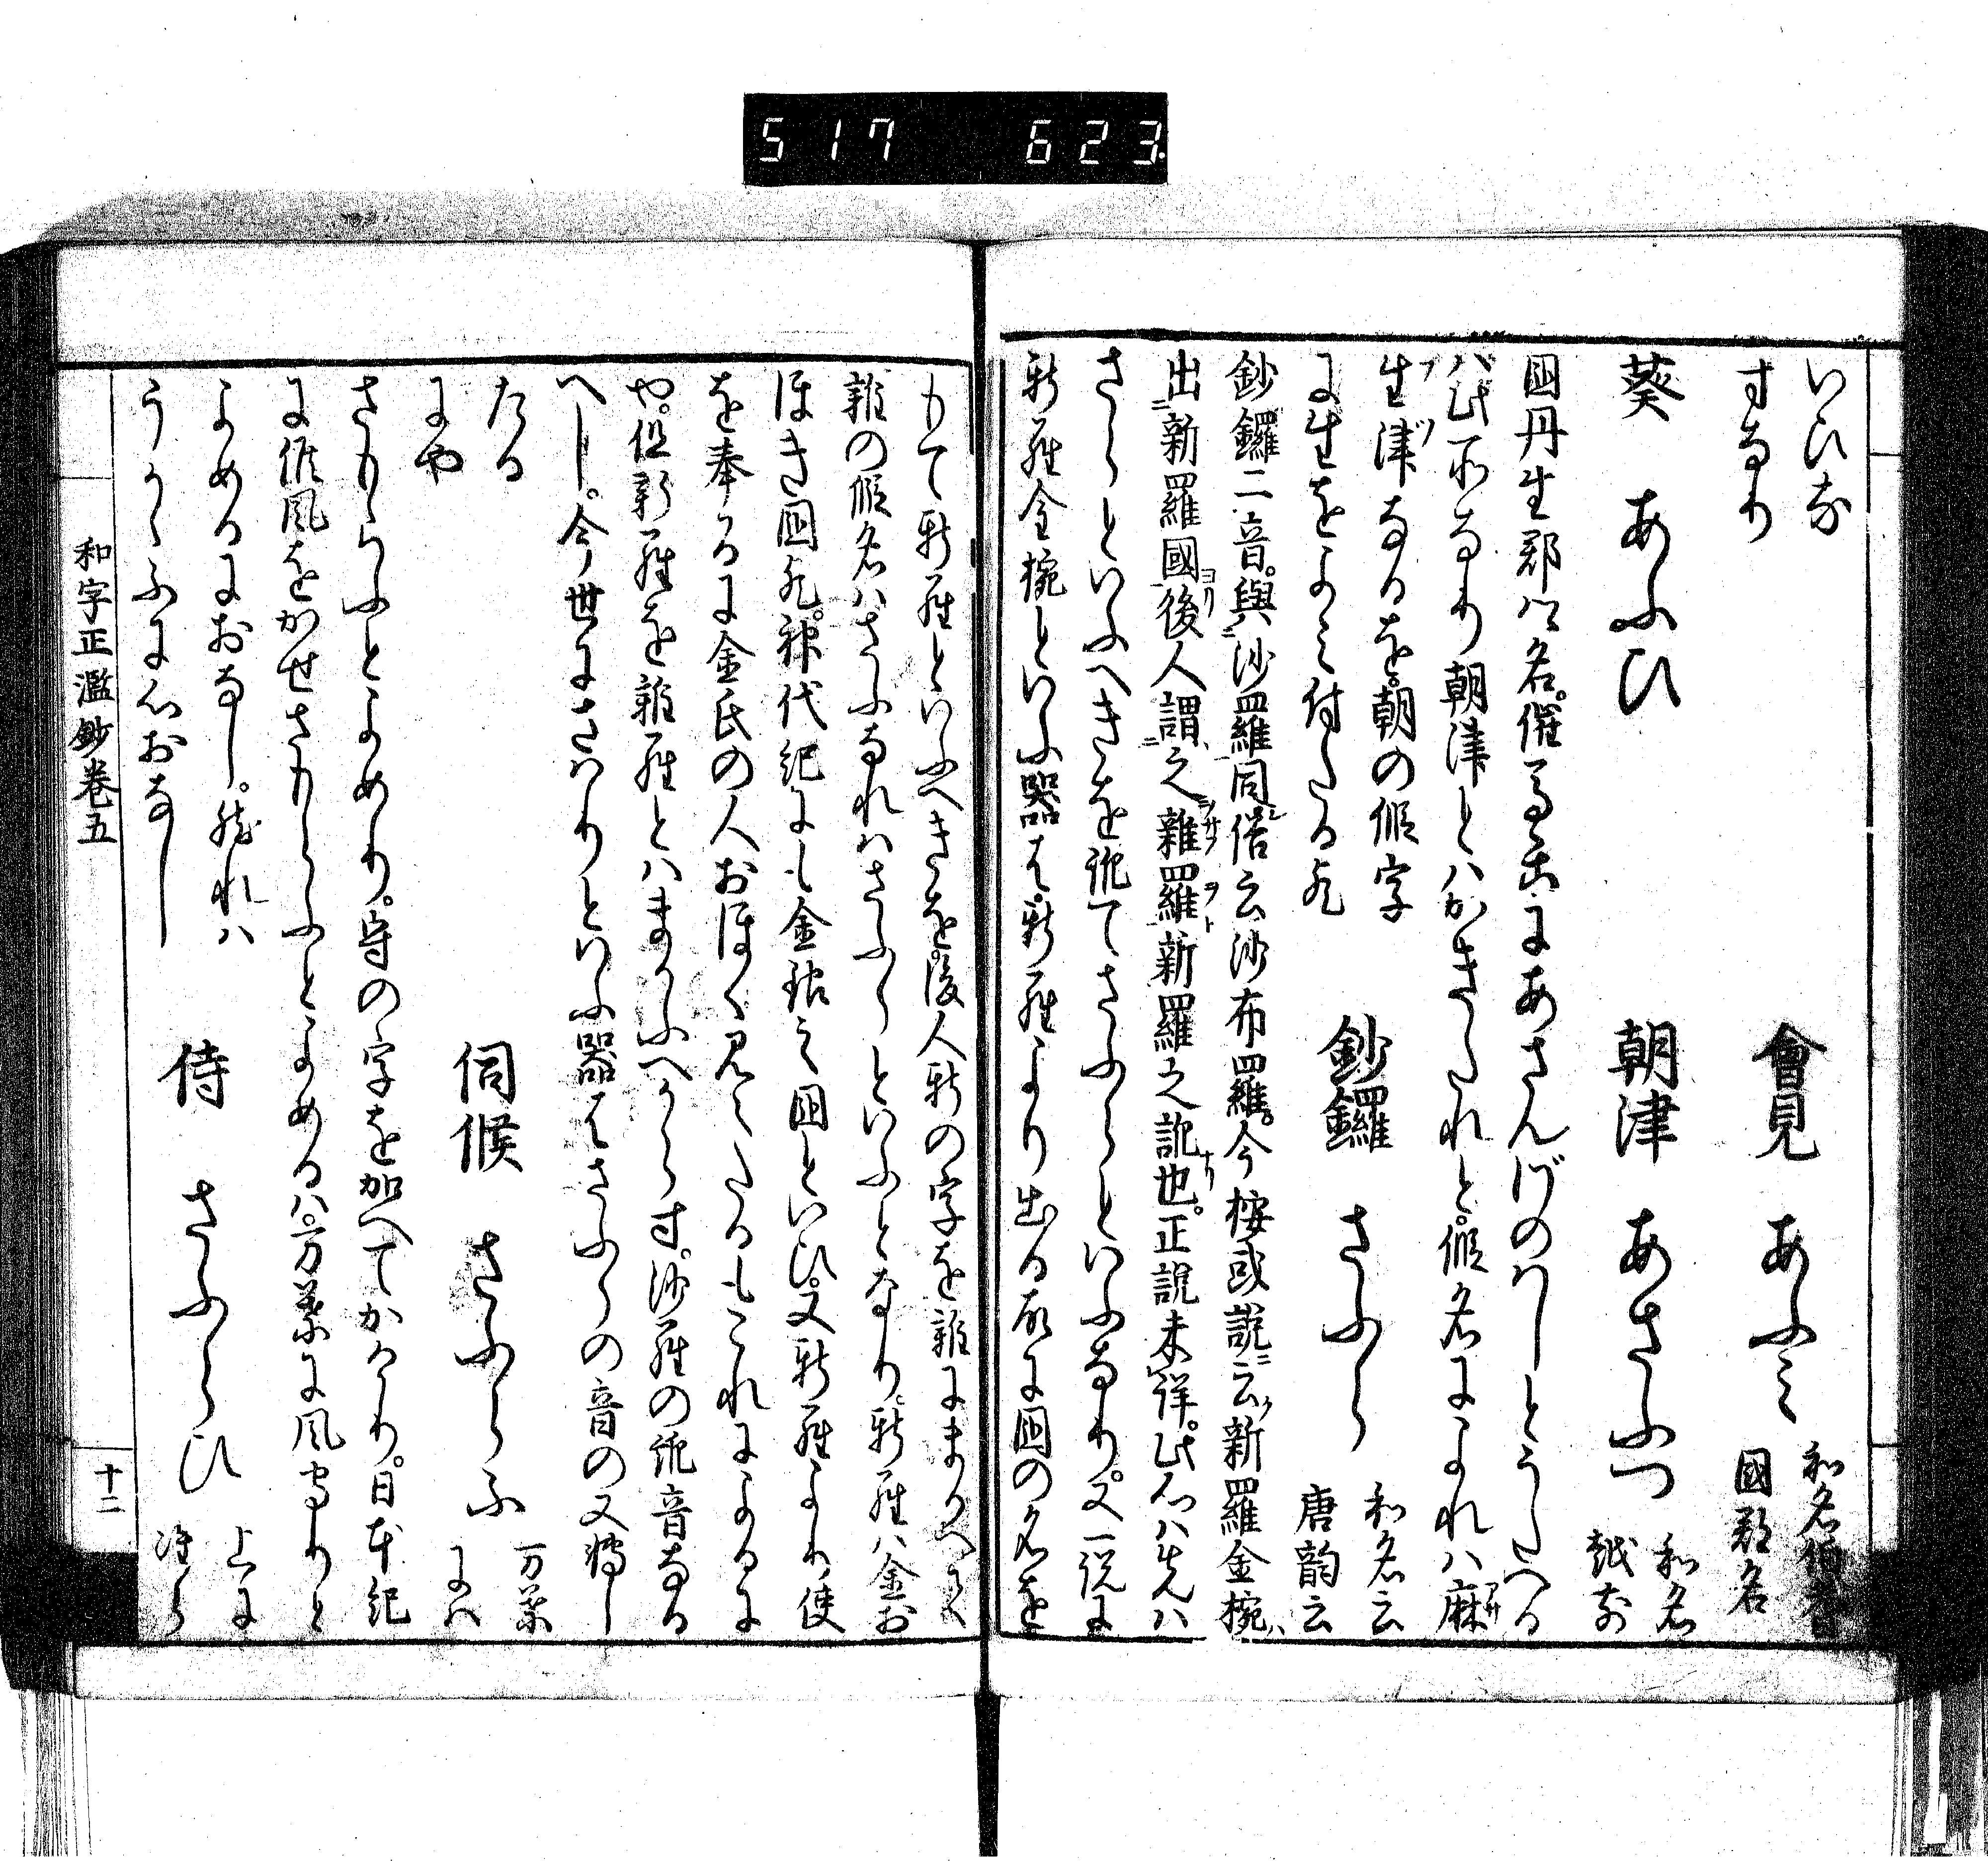 517 623
いひな
すなり
會見 あふみ 和名伯耆國郡名
葵 あふひ
朝津 あさふつ 和名越前
國丹生郡に名催馬楽にあさんづのはしとうたへる
ば此所なり朝津とはかきたれと假名によれは麻
生津なるを朝の假字
に生をよみ付たる歟
鈔鑼 さふら 和名云唐韵云
鈔鑼二音與沙羅同俗云沙布羅今按或説云新羅金椀
出新羅國後人謂之雜羅新羅之訛也正説未詳此心は先は
さらといふへきを訛てさふらといふなり又一説に
新羅金椀といふ器は新羅より出る故に國の名を
もて新羅といふへきを後人新の字を雜にまかへて
雜の假名はさふなれはさふらといふとなり新羅は金お
ほき國歟神代紀にも金銀之國といひ又新羅より使
を奉るに金氏の人おほく見えたるもこれによるに
や但新羅を雜羅とはまかふへからす沙羅の訛音なる
へし今世にさはりといふ器はさふらの音の又轉し
たる
にや
伺候 さふらふ 万葉には
さもらふとよめり守の字を加へてかけり日本紀
に候風をかせさもらふとよめるは万葉に風守りと
よめるにおなし然れは
うかゝふに心おなし
侍 さふらひ 上に准ら
和字正濫鈔巻五
十二